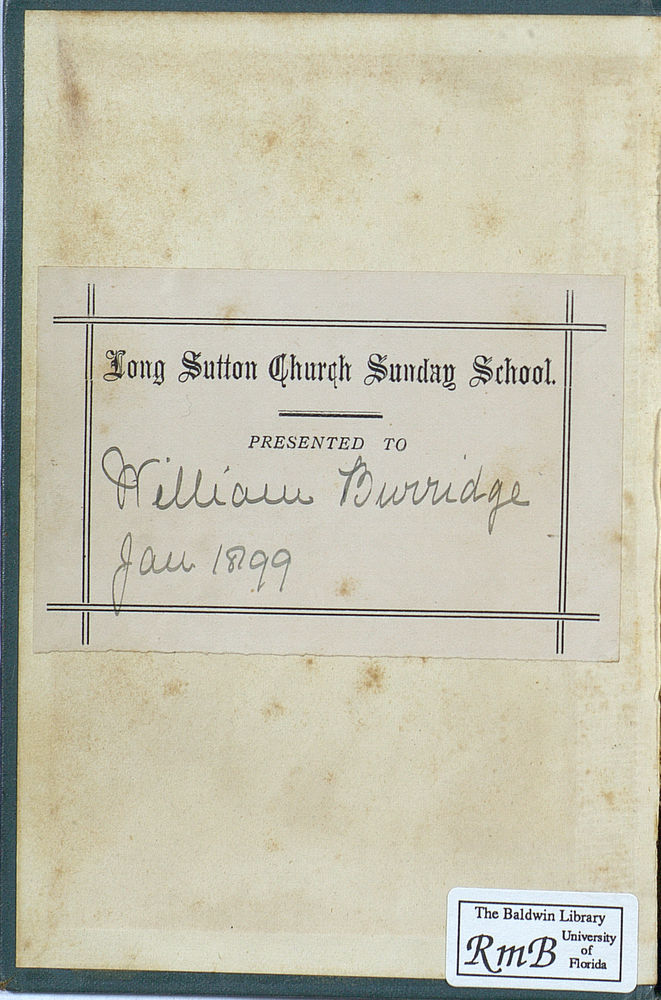 Long Sutton Church Sunday School.
PRESENTED TO
William Burridge
Jan 1899
The Baldwin Library
RmB
University
of
Florida